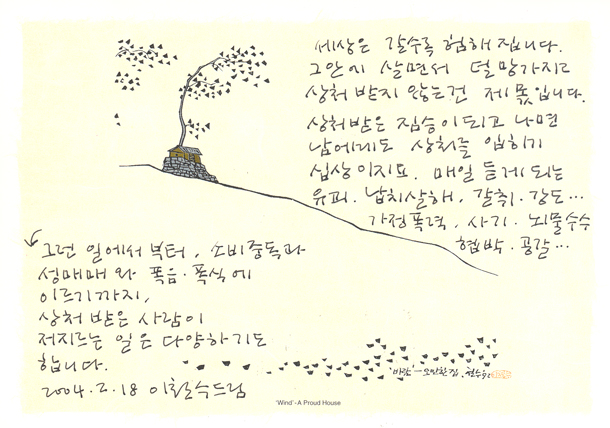 세상은 갈수록 험해 집니다.
그안에 살면서 덜 망가지고
상처 받지 않는건 제 몫입니다.
상처받은 짐승이 되고 나면
남에게도 상처를 입히기
십상이지요. 매일 듣게 되는
유괴. 납치살해, 갈취. 강도...
가정폭력, 사기. 뇌물수수
협박. 공갈...
그런 일에서 부터, 소비중독과
성매매와 폭음. 폭식에
이르기까지,
상처 받은 사람이
저지르는 일은 다양하기도
합니다.
2004.2.18 이철수드림
'바람'-오만한 집. 철수
'Wind'-A Proud House